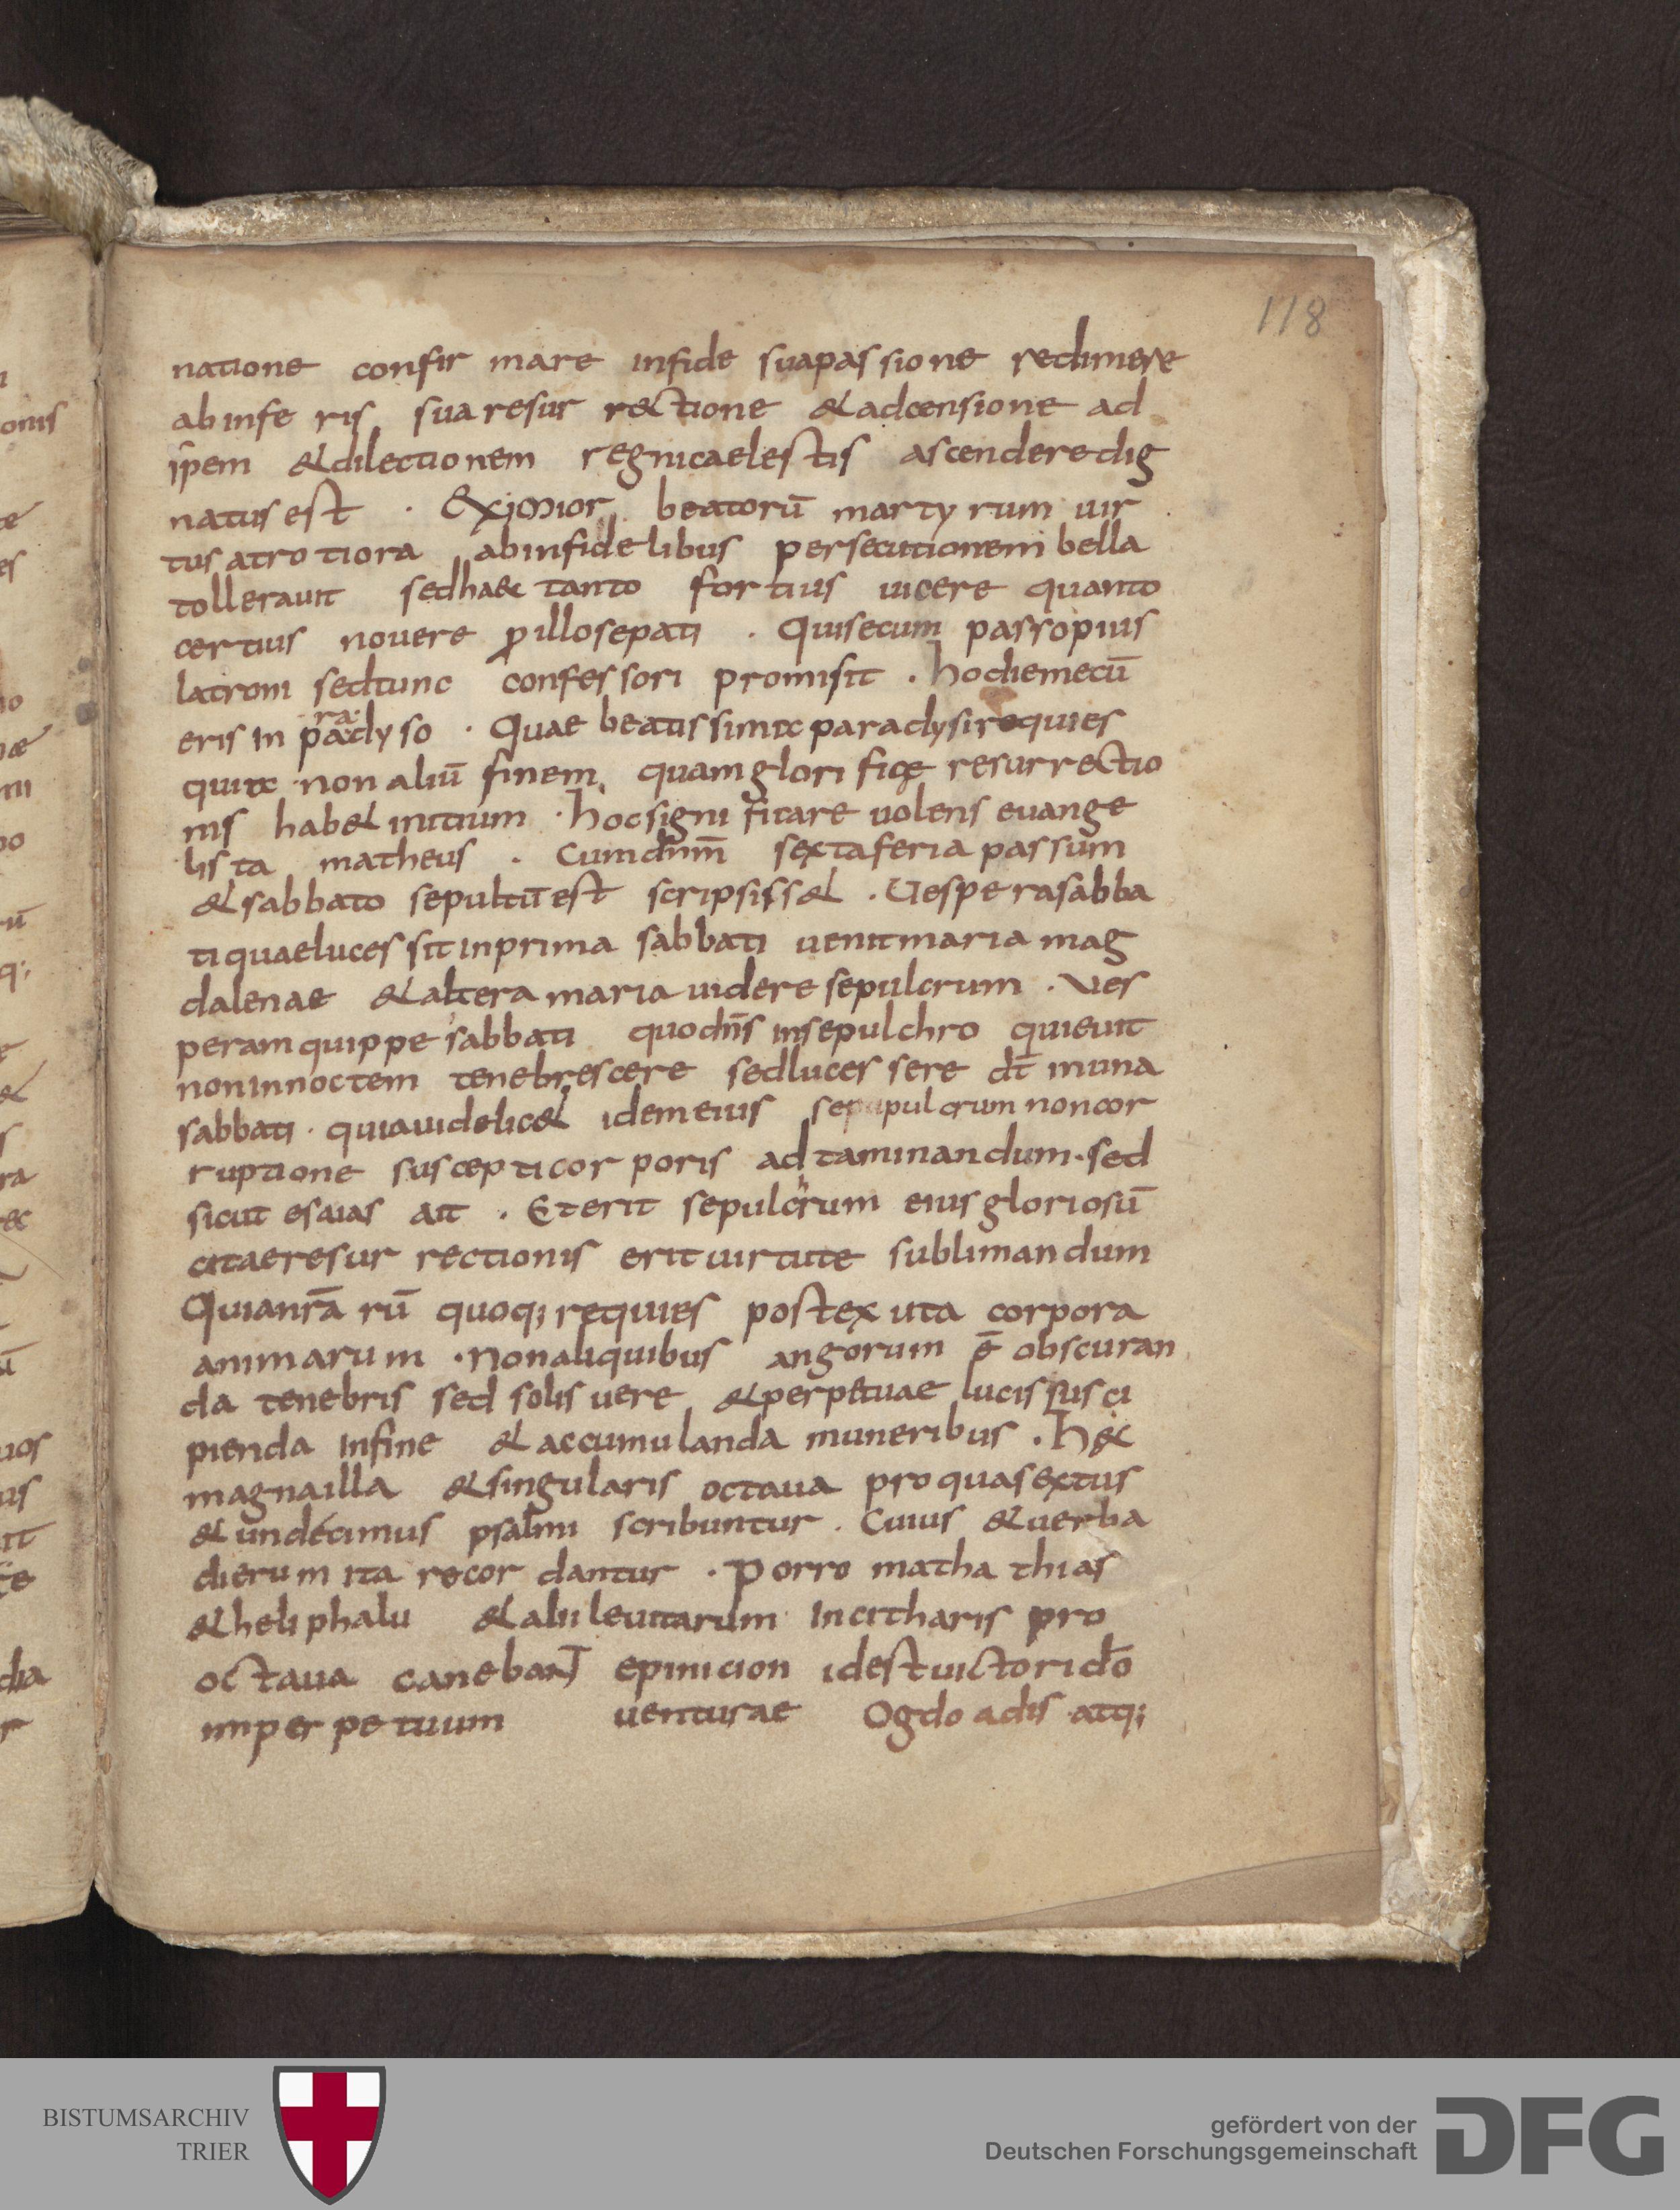 118
natione confir mare infide suapassione redimere
abinfe ris suaresur rectione &adcensione ad
ip̄em &dilectionem regnicaelestis ascenderedig
natusest · Eximior beatorū martyrum uir
tusatrotiora abinfidelibus persecutionem bella
tollerauit sedhaec tanto fortius uicere quanto
certius nouere ꝓillosepati · Quisecum passopius
latroni sedtunc confessori promisit · hodiemecū
eris in paradyso · Quae beatissimae paradysirequies
quae non aliū finem quamglorificę resurrectio
nis hab& initium · hocsignificare uolens euange
lista matheus · Cumdn̄m sextaferia passum
&sabbato sepultūest scripsiss& · Uesperasabba
tiquaelucessitinprima sabbati uenitmaria mag
dalenae &altera maria uidere sepulcrum · ues
peramquippe sabbati quodn̄s insepulchro quieuit
noninnoctem tenebrescere sedlucessere dt̄ inuna
sabbati · quiauidelic& idemeius sepupulcrum noncor
ruptione suscepticorporis adtaminandum · sed
sicut esaias ait · Eterit sepulcrum eiusgloriosū
citaeresurrectionis erituirtute sublimandum
Quianr̄arū quoq; requies postexuta corpora
animarum · Nonaliquibus angorum ē obscuran
da tenebris sed solis uere &perpetuae lucissusci
pienda infine &accumulanda muneribus · Hęc
magnailla &singularis octaua proquasextus
&undécimus psalmi scribuntur · Cuius &uerba
dierum ita recordantur · Porro mathathias
&heliphalu &alii leuitarum incitharis pro
octaua caneban&#84; epinicion idestuictorido̅
imperpetuum uenturae Ogdoadis atq;
BISTUMSARCHIV
TRIER
gefördert von der
Deutschen Forschungsgemeinschaft
DFG